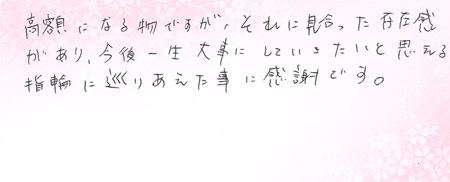 高額になる物ですが、それに見合った存在感
があり、今後一生大事にしていきたいと思える
指輪に巡りあえた事に感謝です。